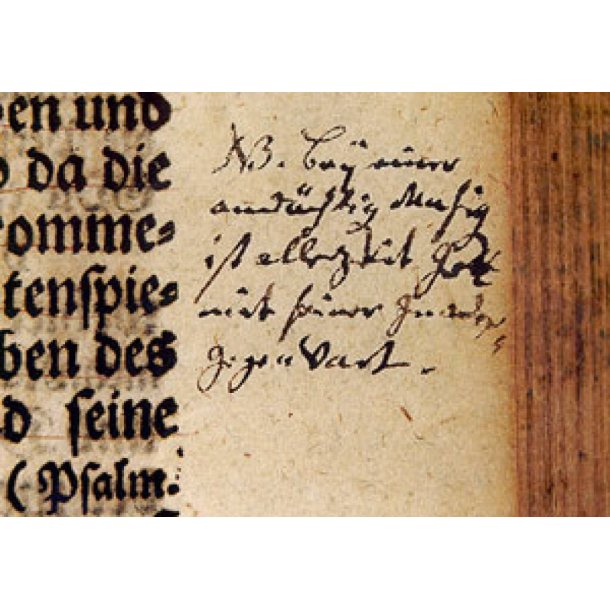 en und
da die
omme⸗
tenſpie⸗
ben des
d ſeine
(Pſalm.
NB. Beÿ einer
andächtig Musiq
ist allezeit Gott
mit seiner Gnaden
Gegenwart.